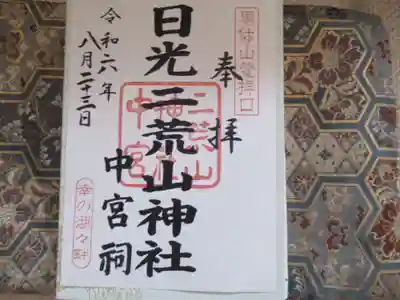 男体山登拝口
奉拝
二荒山神社中宮
日光二荒山神社
中宮祠
令和六年
八月二十二日
幸の湖々畔